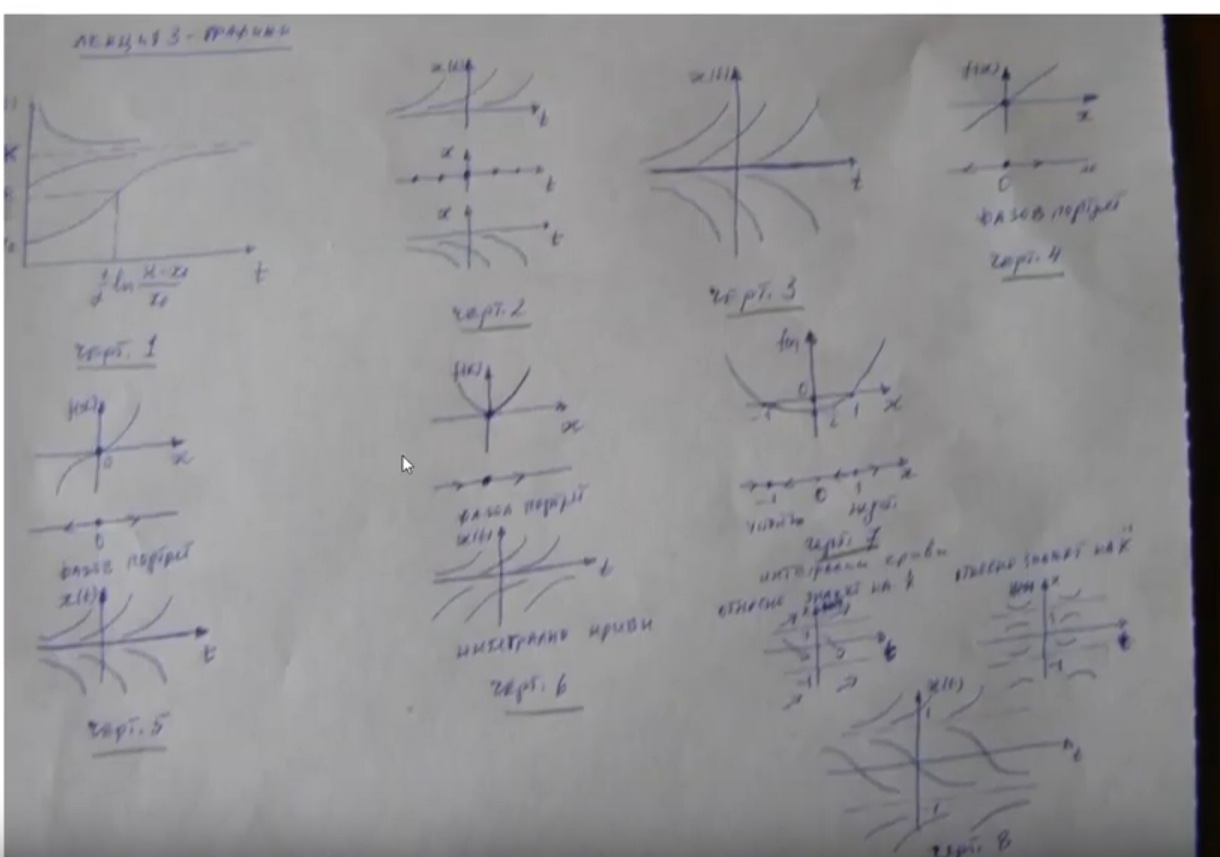 ЛЕКЦИЯ 3 - ГРАФИКИ
K
t
черт. 1
x(t)
t
x
t
x
t
черт. 2
x(t)
t
черт. 3
f(x)
x
0
ФАЗОВ ПОРТРЕТ
черт. 4
f(x)
0
x
0
ФАЗОВ ПОРТРЕТ
x(t)
t
черт. 5
f(x)
x
ФАЗОВ ПОРТРЕТ
x(t)
t
ИНТЕГРАЛНИ КРИВИ
черт. 6
0
-1
1
x
-1
0
1
x
черт. 7
ИНТЕГРАЛНИ КРИВИ
ОТНОСНО ЗНАКЪТ НА
ОТНОСНО ЗНАКЪТ НА
1
-1
t
1
-1
x(t)
1
t
-1
черт. 8